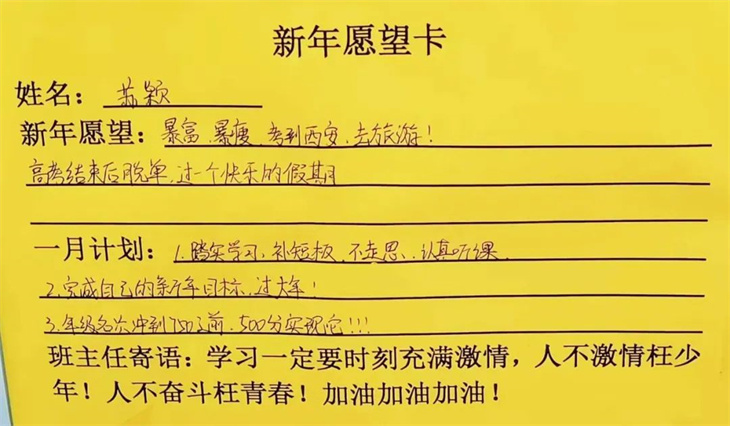 新年愿望卡
姓名：苏颖
新年愿望：暴富、暴瘦、考到西安、去旅游！
高考结束后脱单、过一个快乐的假期
一月计划：1.踏实学习、补短板、不走思、认真听课.
2.完成自己的新年目标、过大年！
3.年级名次冲到750之前、500分实现它！！！
班主任寄语：学习一定要时刻充满激情，人不激情枉少
年！人不奋斗枉青春！加油加油加油！